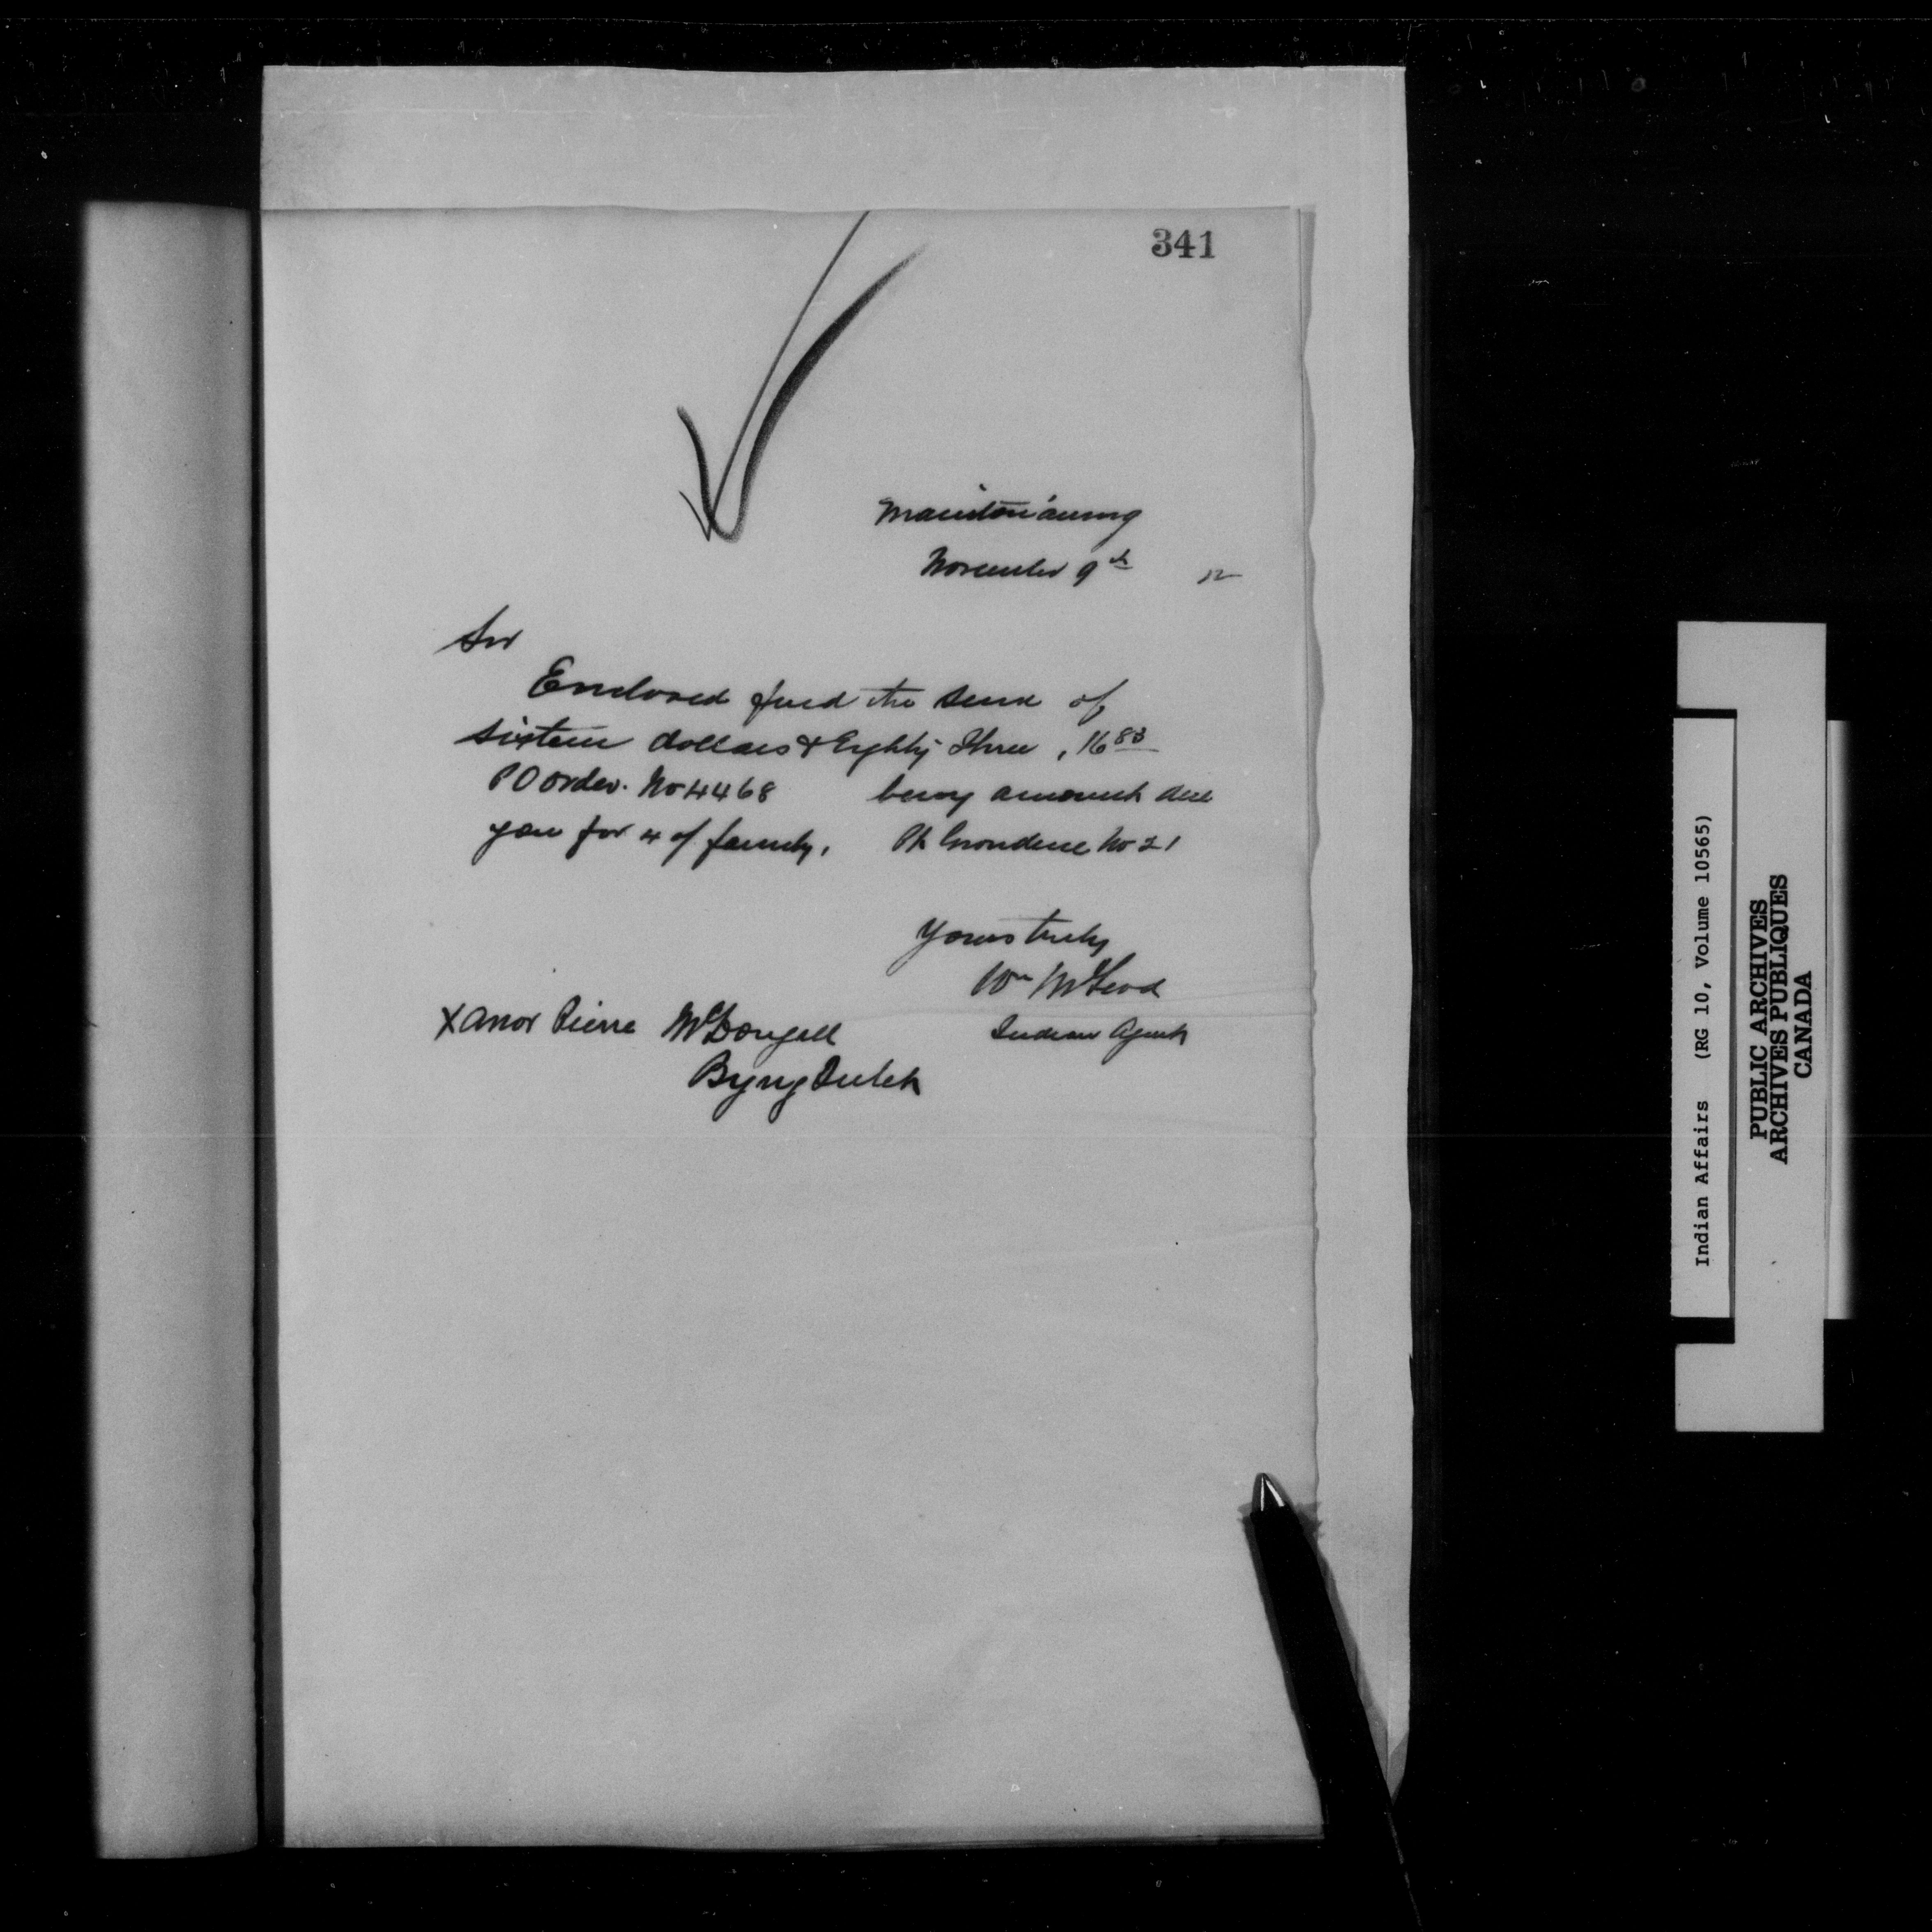 341
Manitowaning
November 9th 12
Sir
Enclosed find the sum of
sixteen dollars & Eighty Three, 16 83
P O order. No 4468 being amount due
you for 4 of family, Pt Grondine No 21
Yours truly
Wm McLeod
Indian Agent
X anor Pierre McDougall
Byng Inlet
Indian Affairs (RG 10, Volume 10565)
PUBLIC ARCHIVES
ARCHIVES PUBLIQUES
CANADA